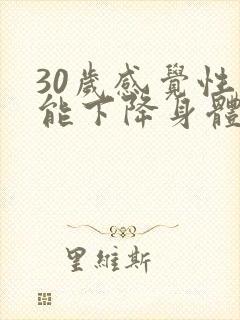 30歲感覺性
能下降身體
里維斯